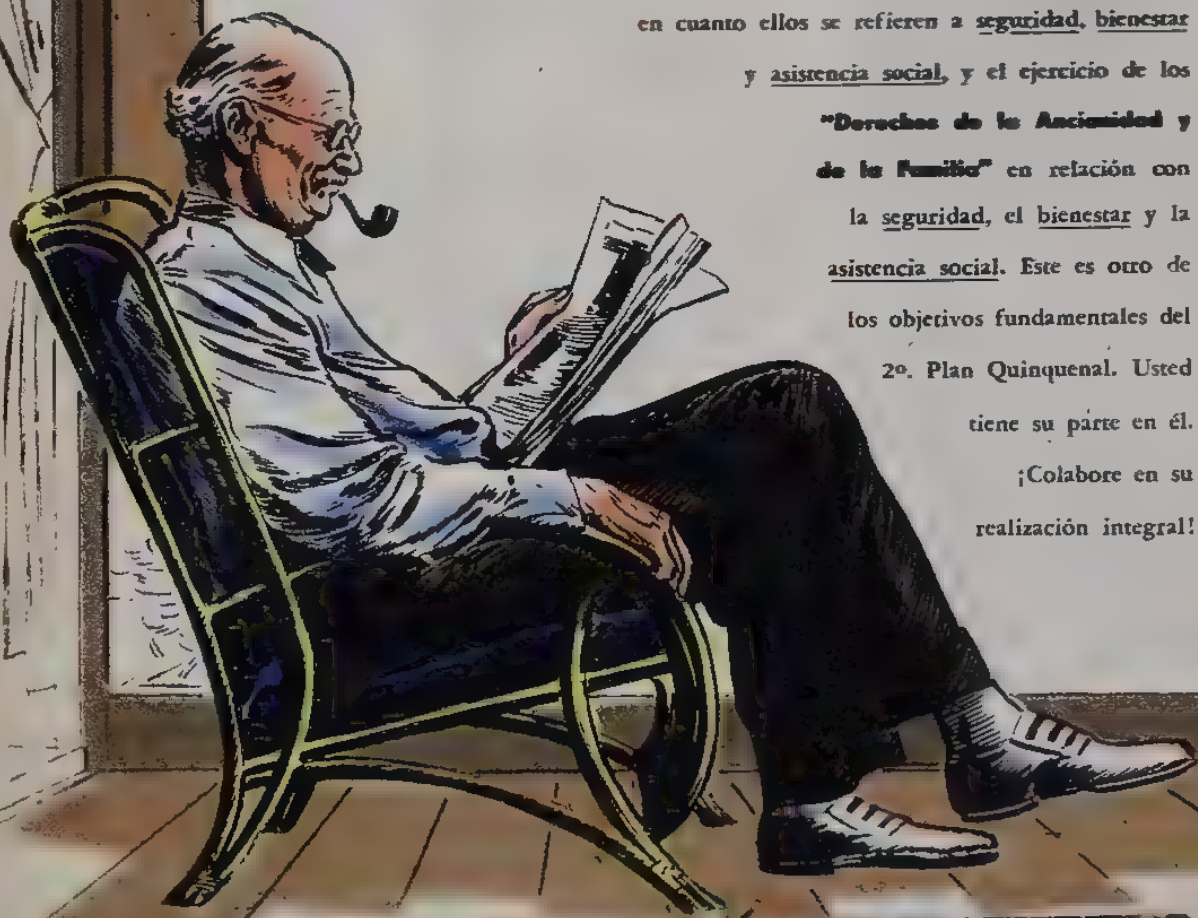 en cuanto ellos se refieren a seguridad, bienestar
y asistencia social, y el ejercicio de los
"Derechos de la Ancianidad y
de la Familia" en relación con
la seguridad, el bienestar y la
asistencia social. Este es otro de
los objetivos fundamentales del
2º. Plan Quinquenal. Usted
tiene su parte en él.
¡Colabore en su
realización integral!